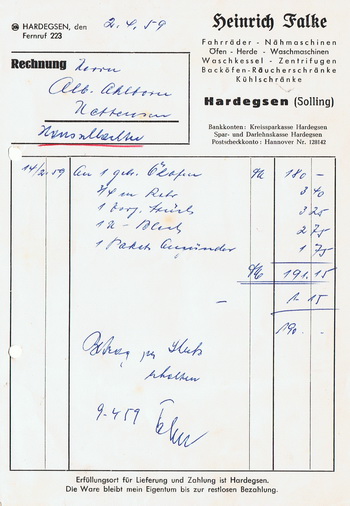 HARDEGSEN, den 2.4.59
Fernruf 223
Heinrich Falke
Fahrräder - Nähmaschinen
Öfen - Herde - Waschmaschinen
Waschkessel - Zentrifugen
Backöfen-Räucherschränke
Kühlschränke
Hardegsen (Solling)
Bankkonten: Kreissparkasse Hardegsen
Spar- und Darlehnskasse Hardegsen
Postscheckkonto: Hannover Nr. 128142
Rechnung Herrn
Alb. Ahlborn
Hettensen
14/2.59 An 1 gebr. Ölofen 180 -
3 40
3 25
1 Blech 2 75
1 Paket Anzünder 1 75
191.15
- 1 15
190 -
Betrag per
erhalten
9-4 59 Falke
Erfüllungsort für Lieferung und Zahlung ist Hardegsen.
Die Ware bleibt mein Eigentum bis zur restlosen Bezahlung.